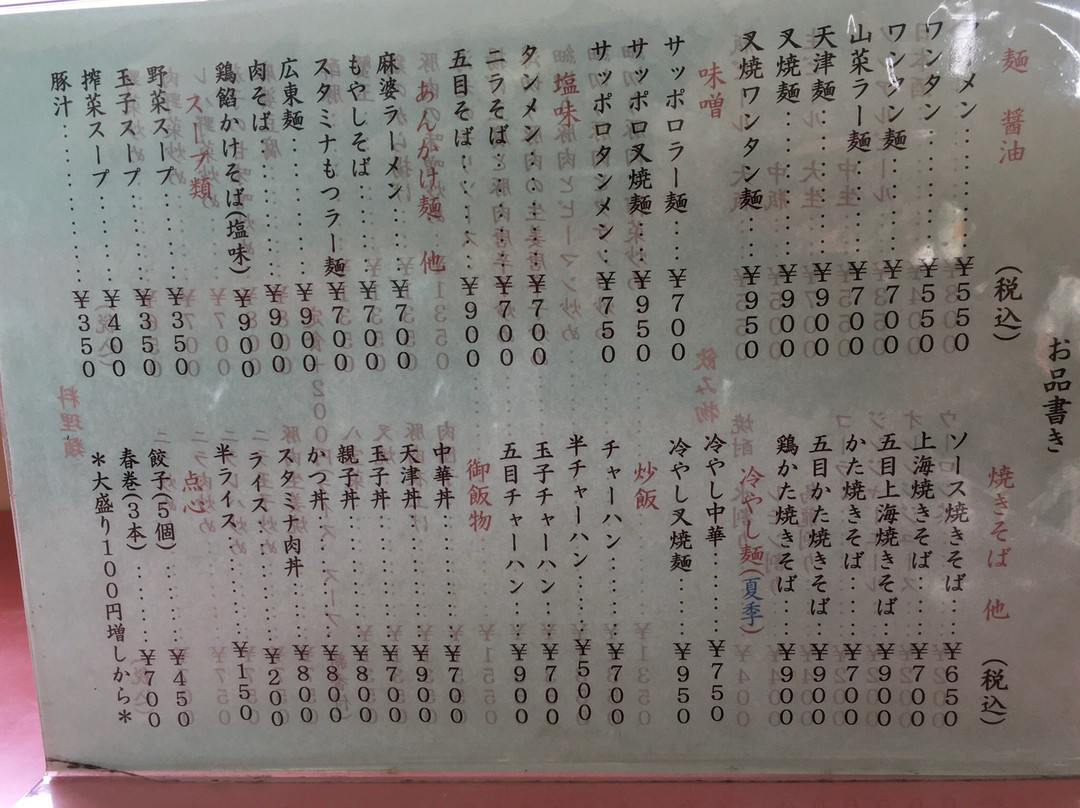 お品書き
麺 醤油 (税込)
メン ¥550
ワンタン ¥550
ワンタン麺 ¥700
山菜ラー麺 ¥700
天津麺 ¥900
叉焼麺 ¥900
叉焼ワンタン麺 ¥950
味噌
サッポロラー麺 ¥700
サッポロ叉焼麺 ¥950
サッポロタンメン ¥750
塩味
タンメン ¥700
ニラそば ¥700
五目そば ¥900
あんかけ麺 他
麻婆ラーメン ¥700
もやしそば ¥700
スタミナもつラー麺 ¥700
広東麺 ¥900
肉そば ¥900
鶏餡かけそば(塩味) ¥900
スープ類
野菜スープ ¥350
玉子スープ ¥350
搾菜スープ ¥400
豚汁 ¥350
焼きそば 他 (税込)
ソース焼きそば ¥650
上海焼きそば ¥700
五目上海焼きそば ¥900
かた焼きそば ¥700
五目かた焼きそば ¥900
鶏かた焼きそば ¥900
冷やし麺(夏季)
冷やし中華 ¥750
冷やし叉焼麺 ¥950
炒飯
チャーハン ¥700
半チャーハン ¥500
玉子チャーハン ¥700
五目チャーハン ¥900
御飯物
中華丼 ¥700
天津丼 ¥900
玉子丼 ¥700
親子丼 ¥800
かつ丼 ¥800
スタミナ肉丼 ¥800
ライス ¥200
半ライス ¥150
点心
餃子(5個) ¥450
春巻(3本) ¥700
*大盛り100円増しから*
料理類
飲み物